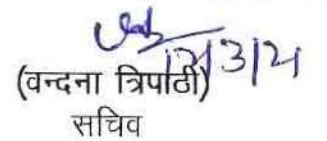 17/3/21
(वन्दना त्रिपाठी)
सचिव